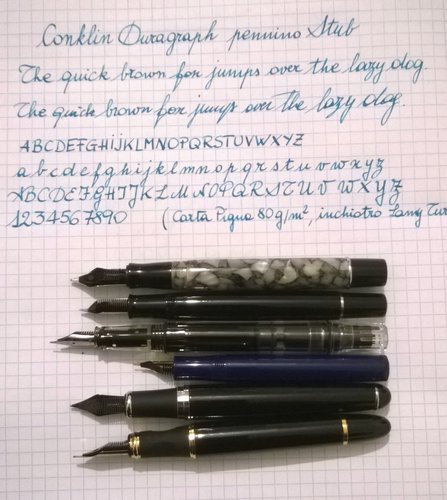 Conklin Duragraph pennino Stub
The quick brown fox jumps over the lazy dog.
The quick brown fox jumps over the lazy dog.
ABCDEFGHIJKLMNOPQRSTUVWXYZ
a b c d e f g h i j k l m n o p q r s t u v w x y z
ABCDEFGHIJKLMNOPQRSTUVWXYZ
1234567890 (Carta Pigna 80g/m², inchiostro Lamy Tur